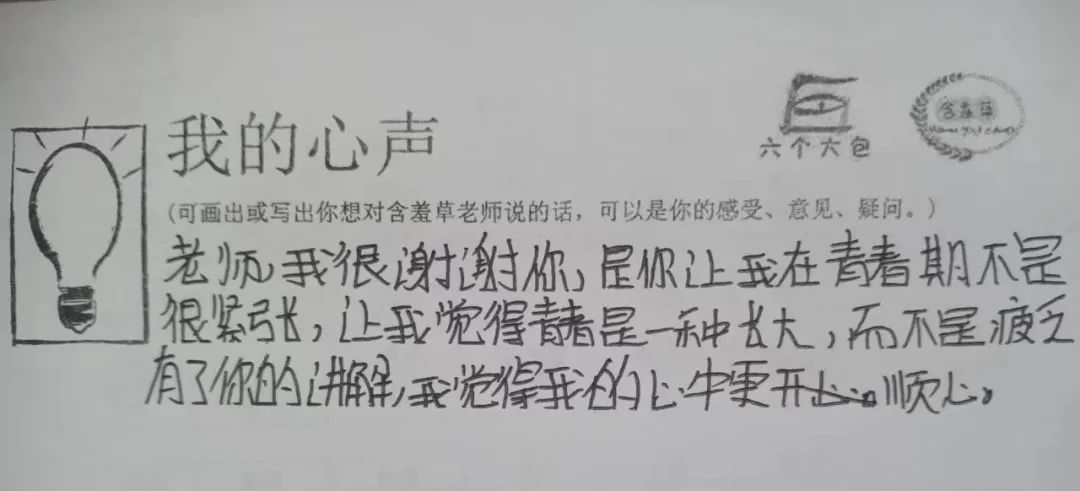 我的心声
六个大包
含羞草
(可画出或写出你想对含羞草老师说的话，可以是你的感受、意见、疑问。)
老师，我很谢谢你，是你让我在青春期不是
很紧张，让我觉得青春是一种长大，而不是疲乏
有了你的讲解，我觉得我的心中更开心。顺心。